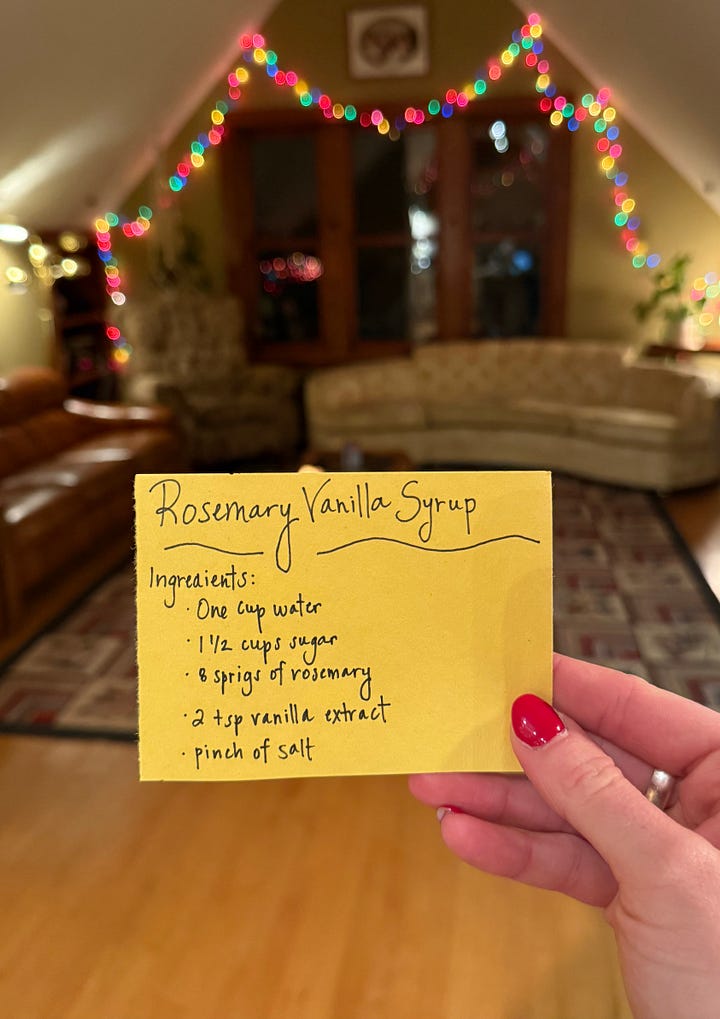 Rosemary Vanilla Syrup
Ingredients:
· One cup water
· 1 1/2 cups sugar
· 8 sprigs of rosemary
· 2 tsp vanilla extract
· pinch of salt